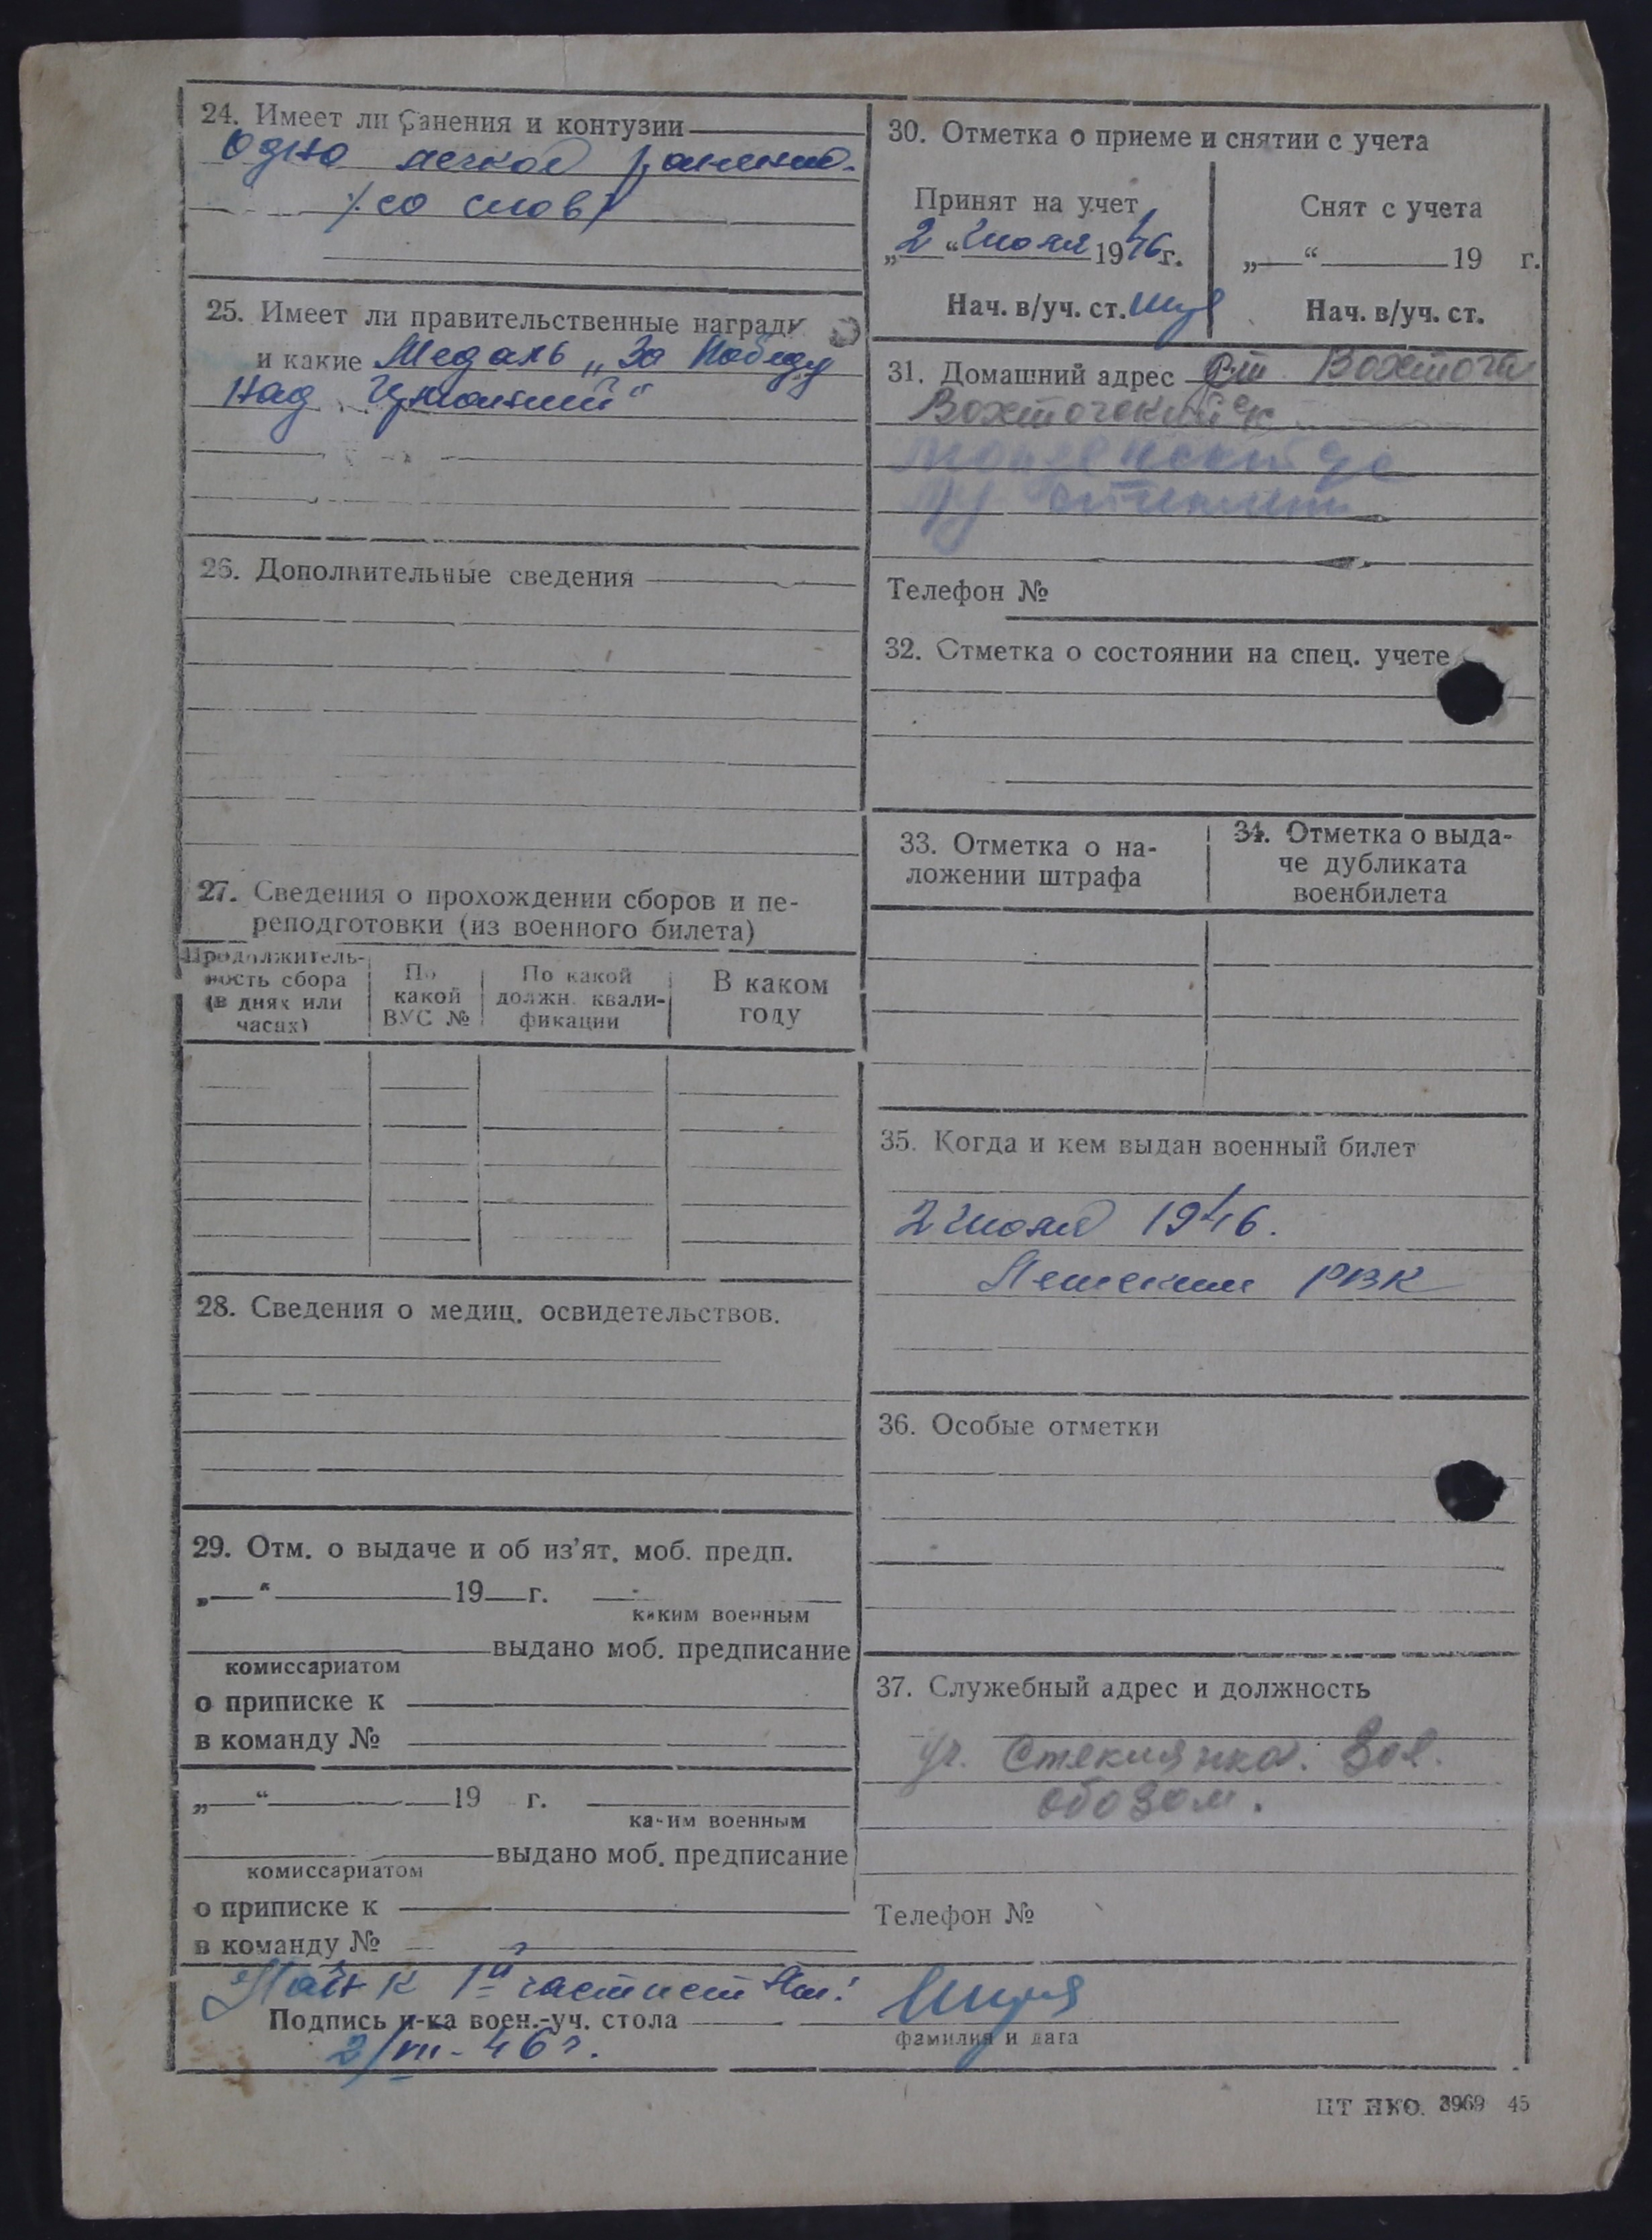 24. Имеет ли ранения и контузии
Одно легкое ранение.
/со слов/
25. Имеет ли правительственные награды
и какие Медаль „За Победу
над Германией“
26. Дополнительные сведения
27. Сведения о прохождении сборов и пе-
реподготовки (из военного билета)
Продолжитель-
ность сбора
(в днях или
часах)
По
какой
ВУС №
По какой
должн. квали-
фикации
В каком
году
28. Сведения о медиц. освидетельствов.
29. Отм. о выдаче и об из’ят. моб. предп.
„ “ 19 г.
каким военным
выдано моб. предписание
комиссариатом
о приписке к
в команду №
„ “ 19 г.
каким военным
выдано моб. предписание
комиссариатом
о приписке к
в команду №
1й части
Подпись н-ка воен.-уч. стола
фамилия и дата
2/VII-46 г.
30. Отметка о приеме и снятии с учета
Принят на учет
„2“ июля 1946 г.
Нач. в/уч. ст.
Снят с учета
„ “ 19 г.
Нач. в/уч. ст.
31. Домашний адрес ст Вохтога
Вохтогский
Телефон №
32. Отметка о состоянии на спец. учете
33. Отметка о на-
ложении штрафа
34. Отметка о выда-
че дубликата
военбилета
35. Когда и кем выдан военный билет
2 июля 1946.
РВК
36. Особые отметки
37. Служебный адрес и должность
уч. Стеклянка. Зав.
обозом.
Телефон №
ЦТ НКО. 3969 45